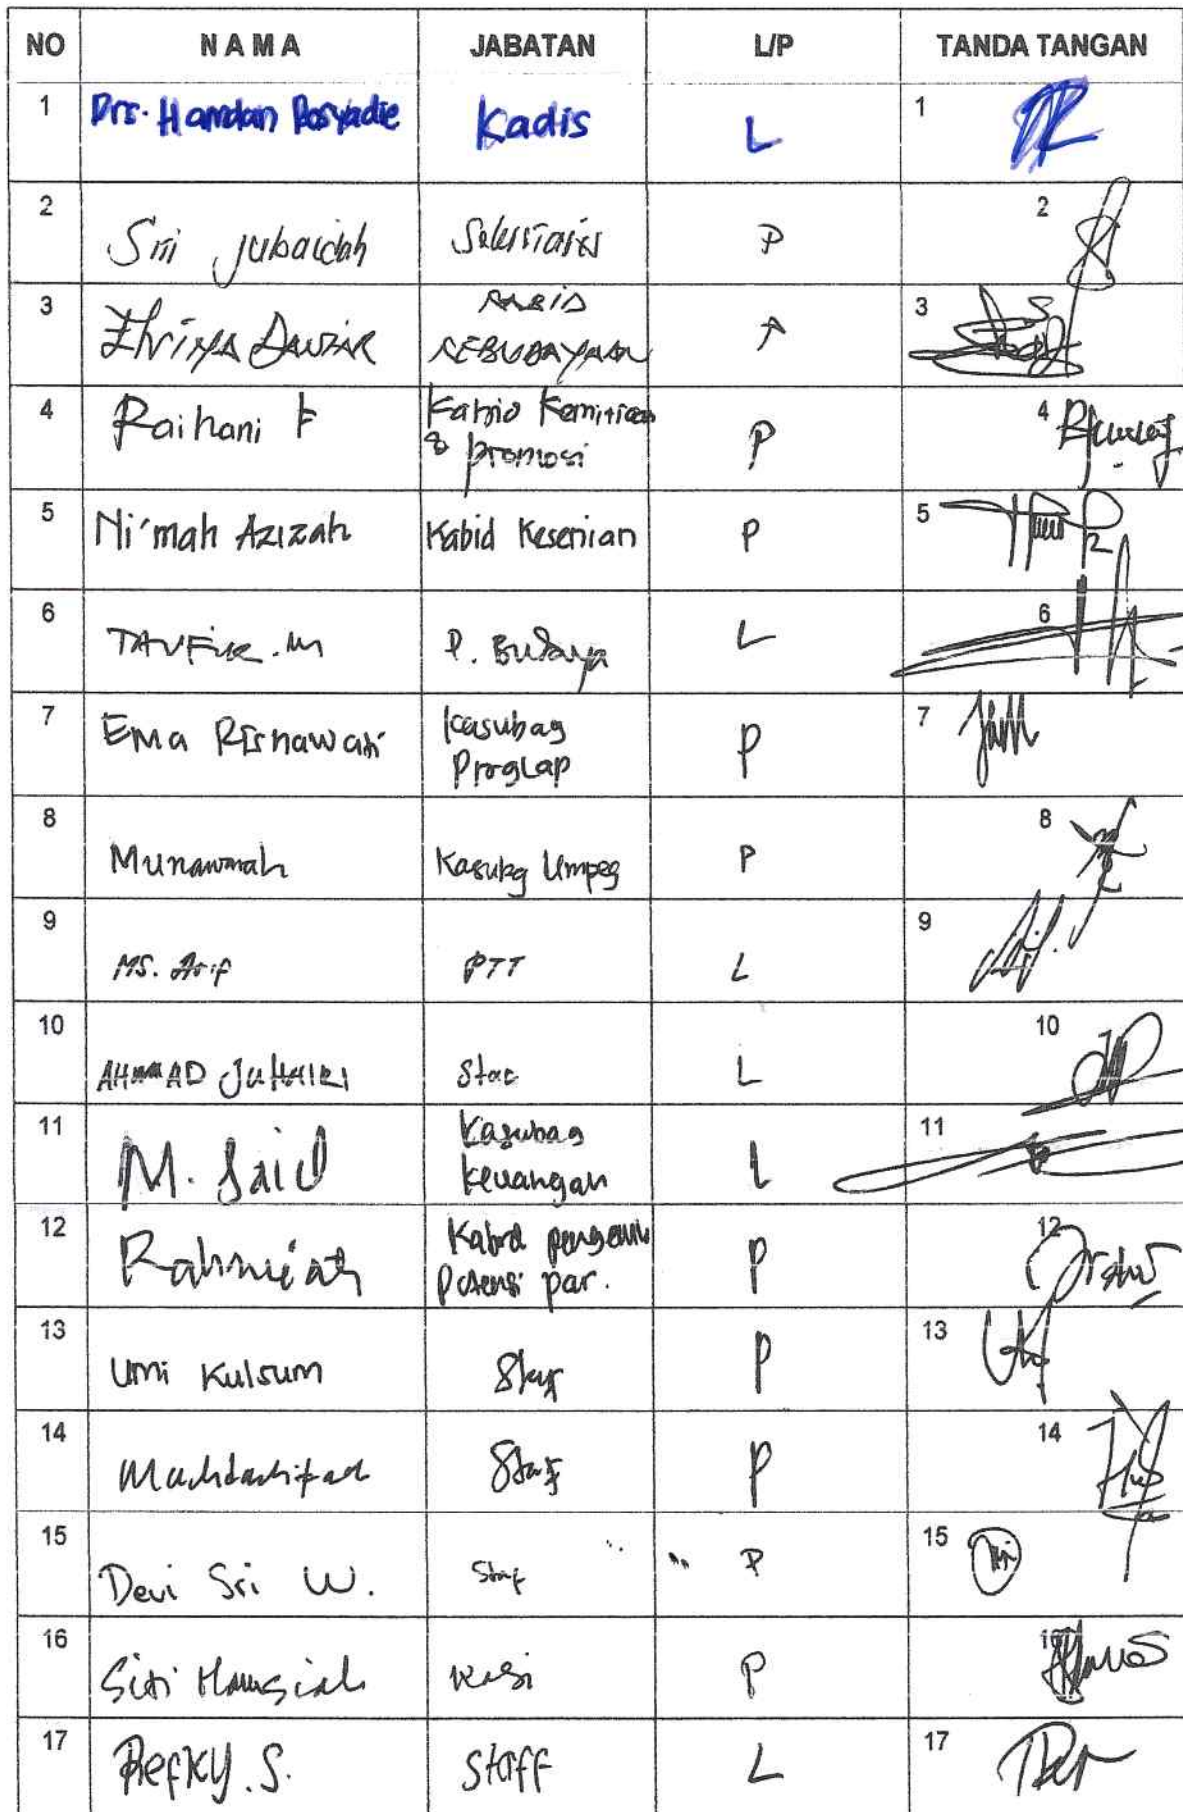 NO NAMA JABATAN L/P TANDA TANGAN
1 Drs. Hamdan Rosyadie Kadis L 1
2 Sri Jubaidah P 2
3 KABID
KEBUDAYAAN 3
4 Raihani F Kabid Kemitraan
& promosi P 4
5 Ni'mah Azizah Kabid Kesenian P 5
6 TAUFIK. M P. Budaya L 6
7 Ema Risnawati Kasubag
Proglap P 7
8 Munawarah Kasubg Umpeg P 8
9 MS. Arif PTT L 9
10 AHMAD JUHAIRI Staf L 10
11 M. Said Kasubag
Keuangan L 11
12 Rahmiah Kabid pengemb
Potensi par. P 12
13 Umi Kulsum Staf P 13
14 Staf P 14
15 Devi Sri W. Staf P 15
16 Siti Kasi P 16
17 Refky. S. Staff L 17